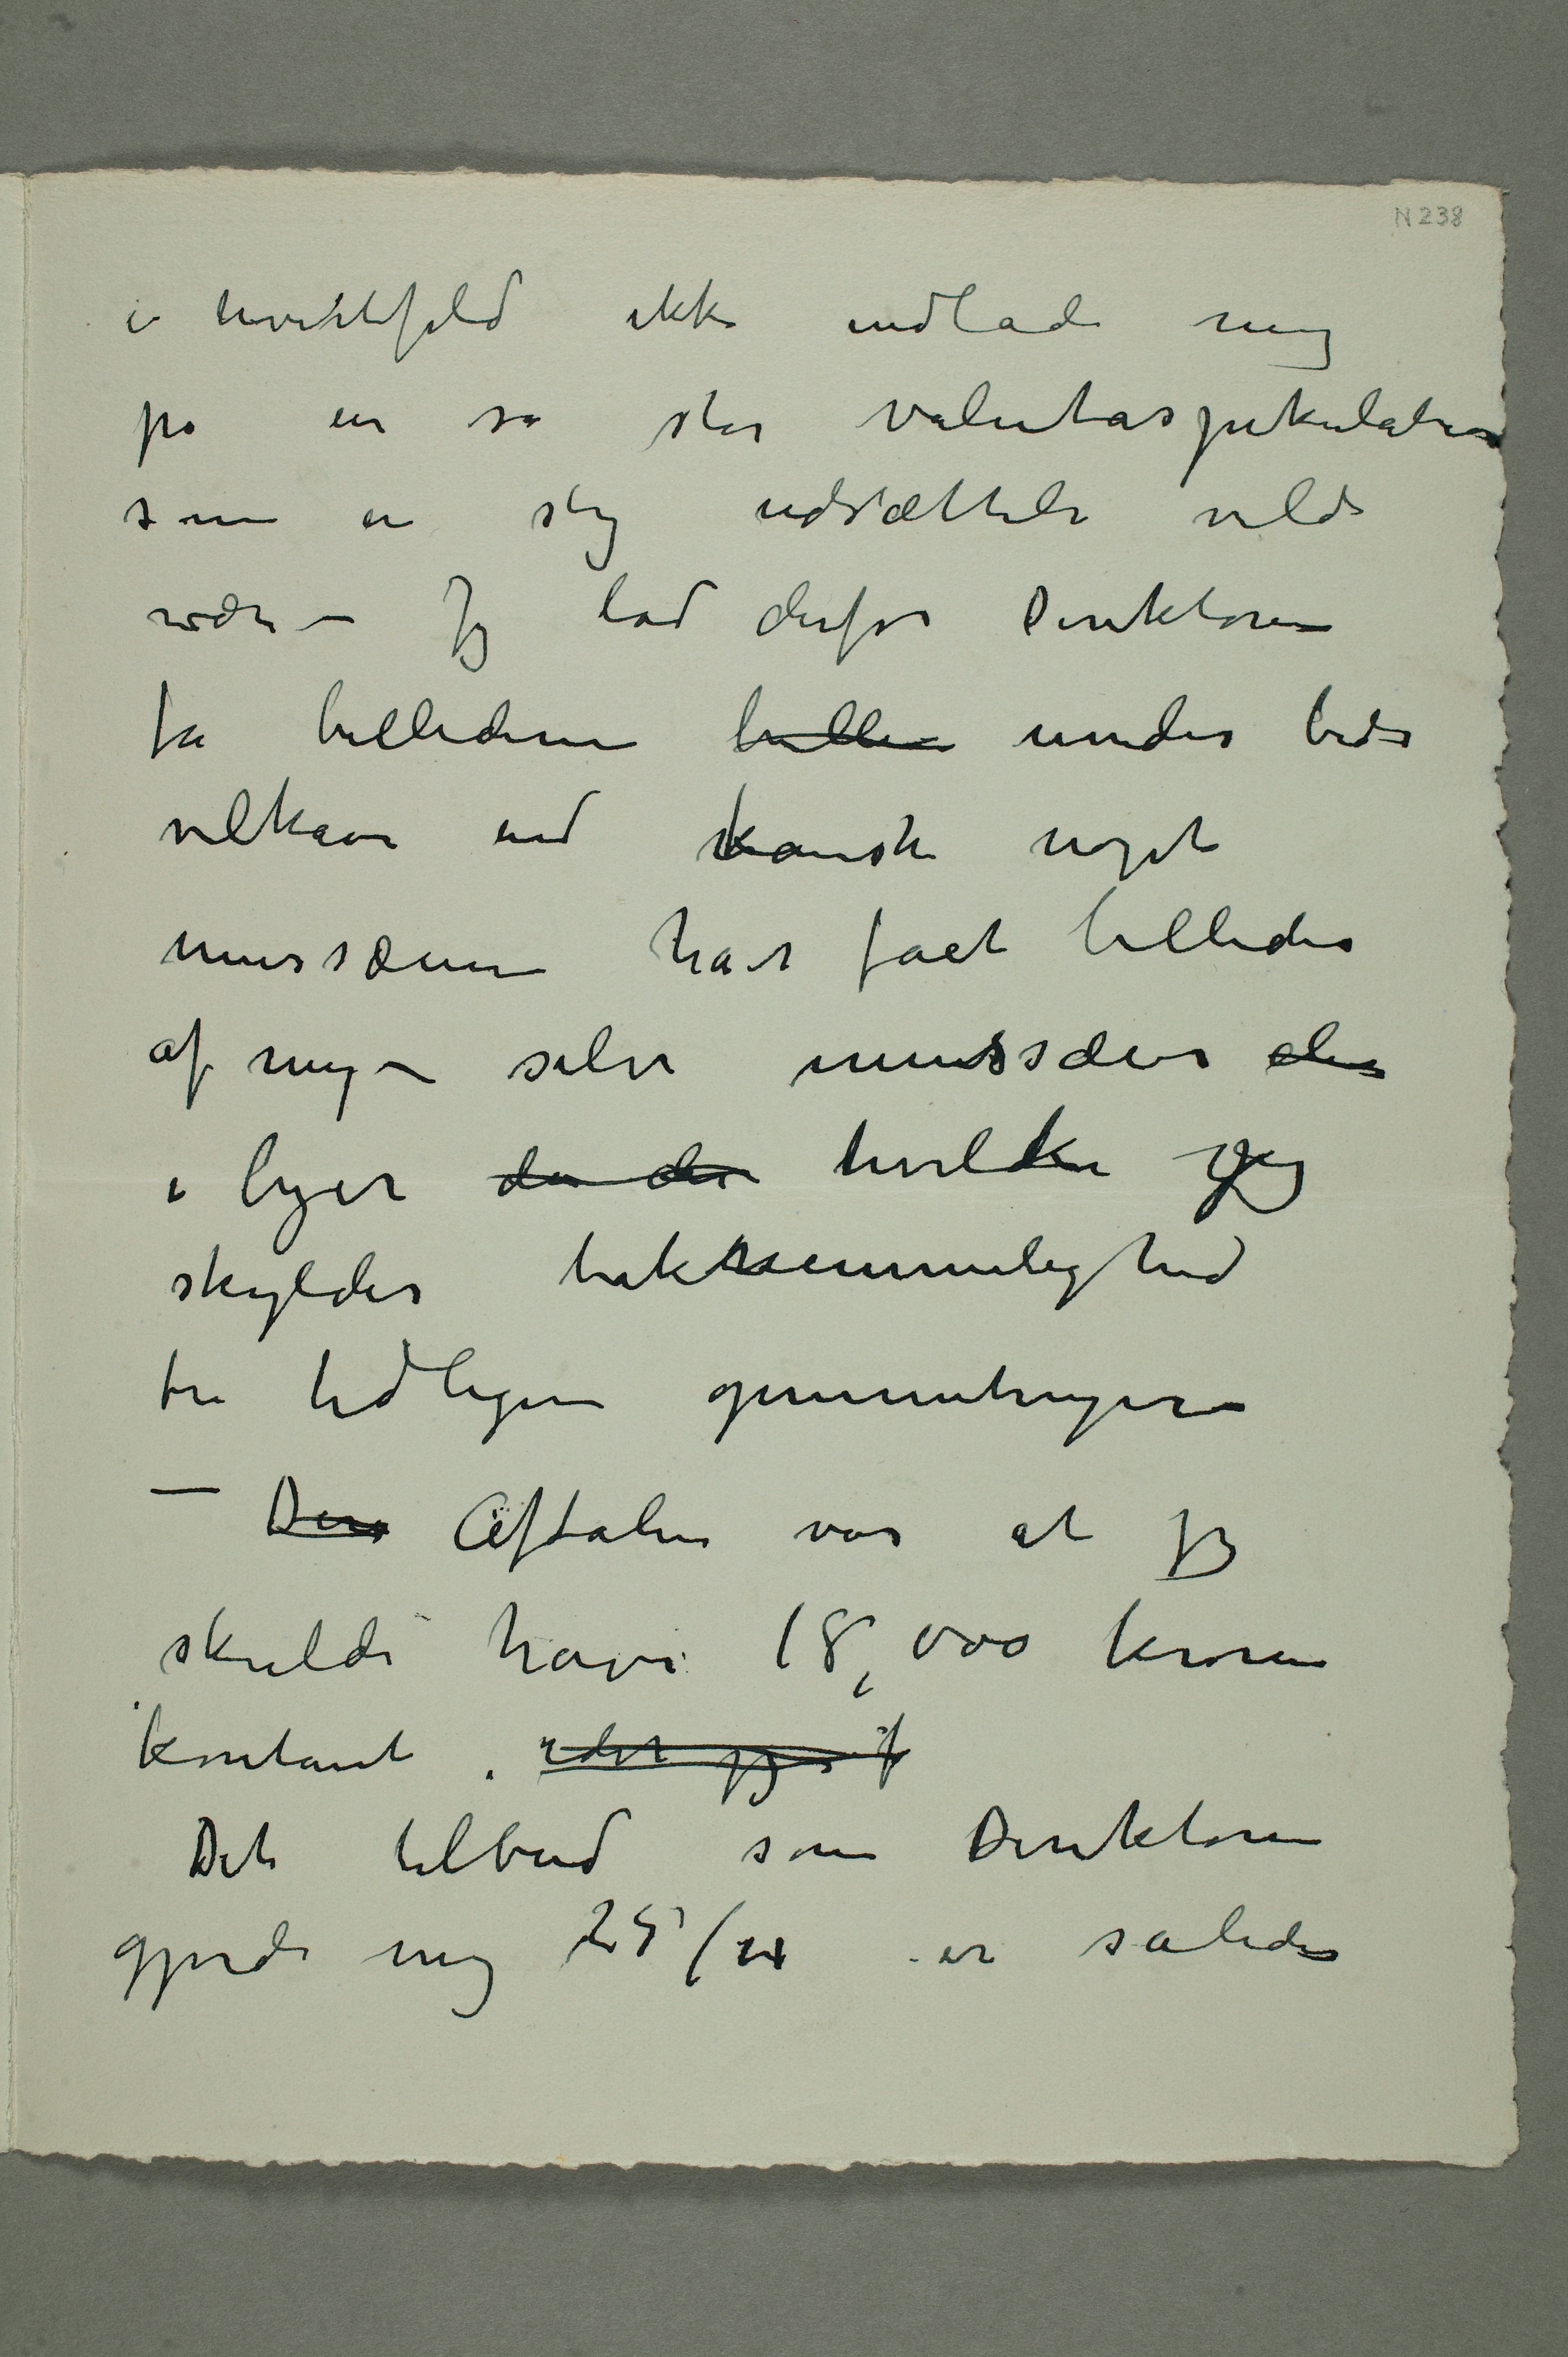 N 238
i hvertfald ikke indlade mig
på en så stor valutaspekulation
som en slig udsættelse vilde
være – Jeg lod derfor Direktøren
få billederne billen under bedre
vilkaar end kanske noget
mussæum har fået billeder
af mig – selv mussæer der
i byer der der hvilke jeg
skylder taknemmelighed
for tidligere opmuntringer
– Den Aftalen var at jeg
skulde have 18,000 kroner
kontant. idet jeg f
Det tilbud som Direktøren
gjorde mig 25/11 er således